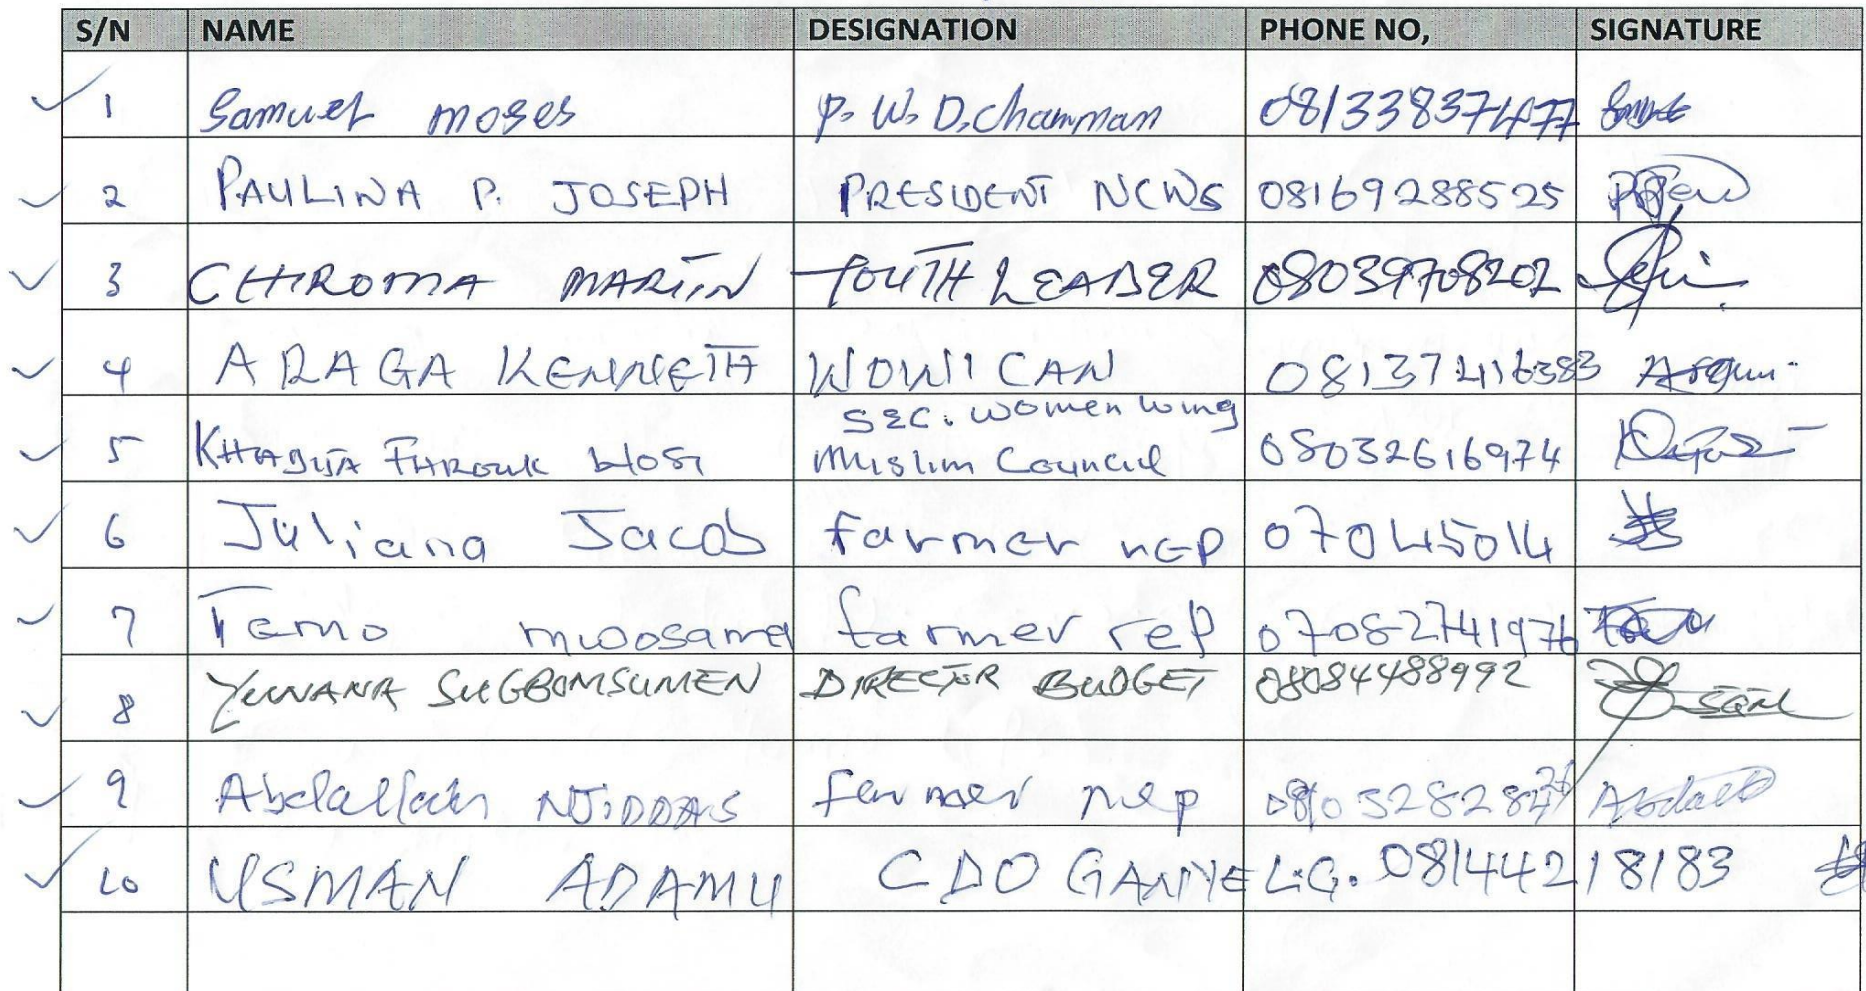 S/N NAME DESIGNATION PHONE NO, SIGNATURE
1 Samuel moses P. W. D. Chamman
2 PAULINA P. JOSEPH PRESIDENT NCWS 08169288525
3 CHIROMA MARTIN YOUTH LEADER 08039708202
4 ARAGA KENNETH WOWICAN 081372416383
SEC. Women Wing
5 KHADIJA FAROUK Muslim Council 08032616974
6 Juliana Jacob farmer rep 07045014
7 Temo farmer rep 07082741976
8 YUNANA SUGBOMSUMEN DIRECTOR BUDGET 08084488992
9 Abdallah farmer rep
10 USMAN ADAMU CDO GANYE L.G. 08144218183